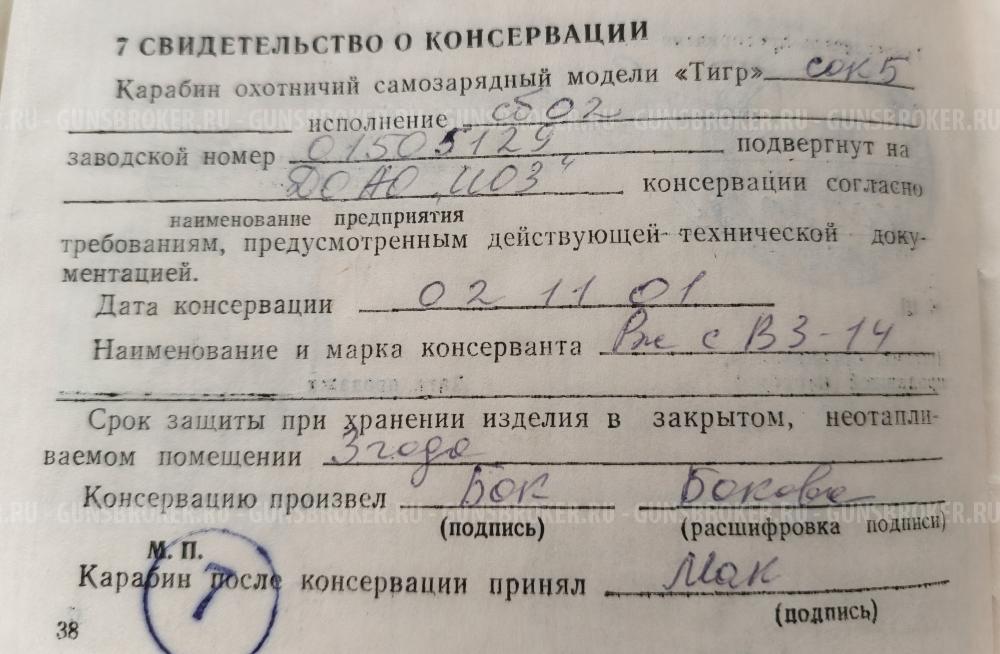 7 СВИДЕТЕЛЬСТВО О КОНСЕРВАЦИИ
Карабин охотничий самозарядный модели «Тигр» сок 5
исполнение сб 02
заводской номер 01505129 подвергнут на
ДОАО „ИОЗ" консервации согласно
наименование предприятия
требованиям, предусмотренным действующей технической доку-
ментацией.
Дата консервации 02 11 01
Наименование и марка консерванта Рж с ВЗ-14
Срок защиты при хранении изделия в закрытом, неотапли-
ваемом помещении 3 года
Консервацию произвел Бок Бокова
(подпись) (расшифровка подписи)
М. П.
Карабин после консервации принял Мак
7
(подпись)
38
GUNSBROKER.RU - GUNSBROKER.RU - GUNSBROKER.RU - GUNSBROKER.RU - GUNSBROKER.RU